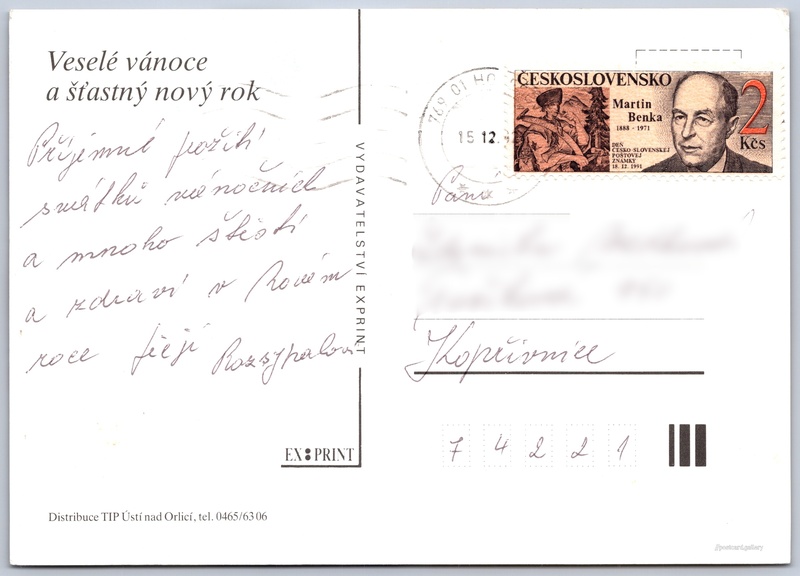 Veselé vánoce
a šťastný nový rok
Příjemné prožití
svátků vánočních
a mnoho štěstí
a zdraví v Novém
roce přejí Rozsypalovi
VYDAVATELSTVÍ EXPRINT
EX PRINT
Distribuce TIP Ústí nad Orlicí, tel. 0465/63 06
15.12.
ČESKOSLOVENSKO
Martin
Benka
1888 - 1971
DEN
ČESKO-SLOVENSKEJ
POŠTOVEJ
ZNÁMKY
18. 12. 1991
2
Kčs
Pana
Kopřivnice
74221
postcard.gallery